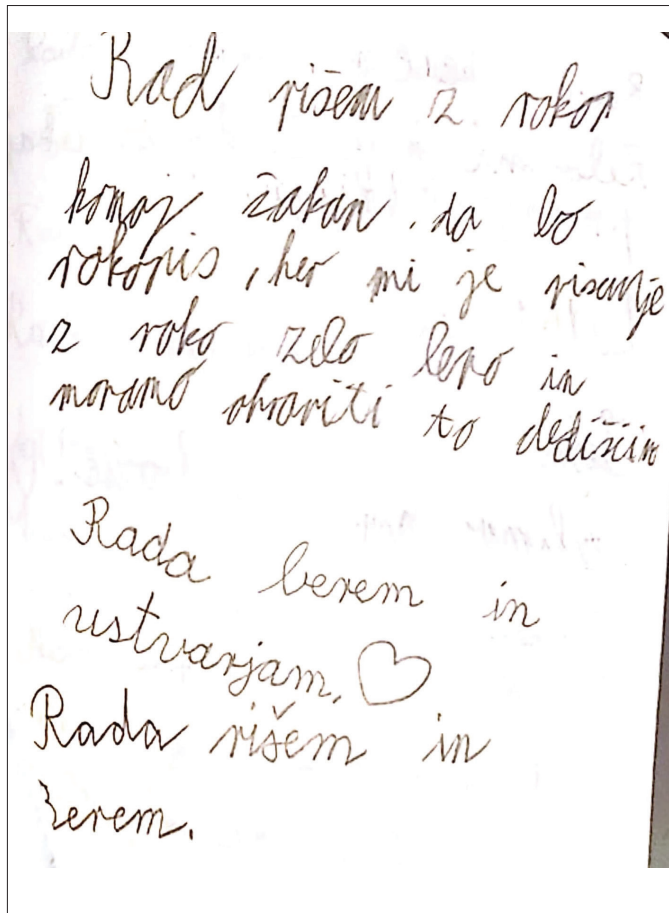 Rad pišem z rokon
komaj čakan, da bo
rokopis, ker mi je pisanje
z roko zelo lepo in
moramo ohraniti to dediščin
Rada berem in
ustvarjam.
Rada rišem in
berem.